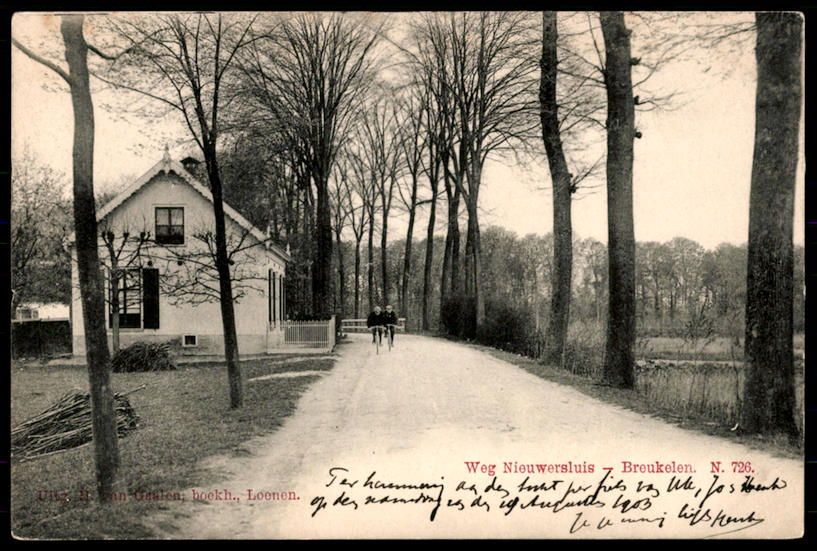 Weg Nieuwersluis – Breukelen. N. 726.
Uitg. H. van Gaalen, boekh., Loenen.
Ter herinnering aan de tocht per fiets van
op den namiddag van den 19 Augustus 1903